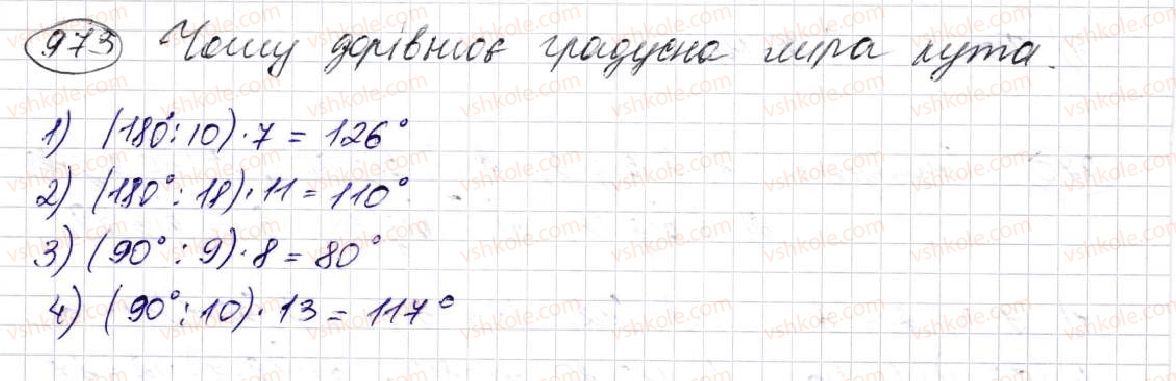 973 Чому дорівнює градусна міра кута.
1) (180°: 10)·7 = 126°
2) (180°: 18)·11 = 110°
3) (90° : 9)·8 = 80°
4) (90°: 10)·13 = 117°
vshkole.com